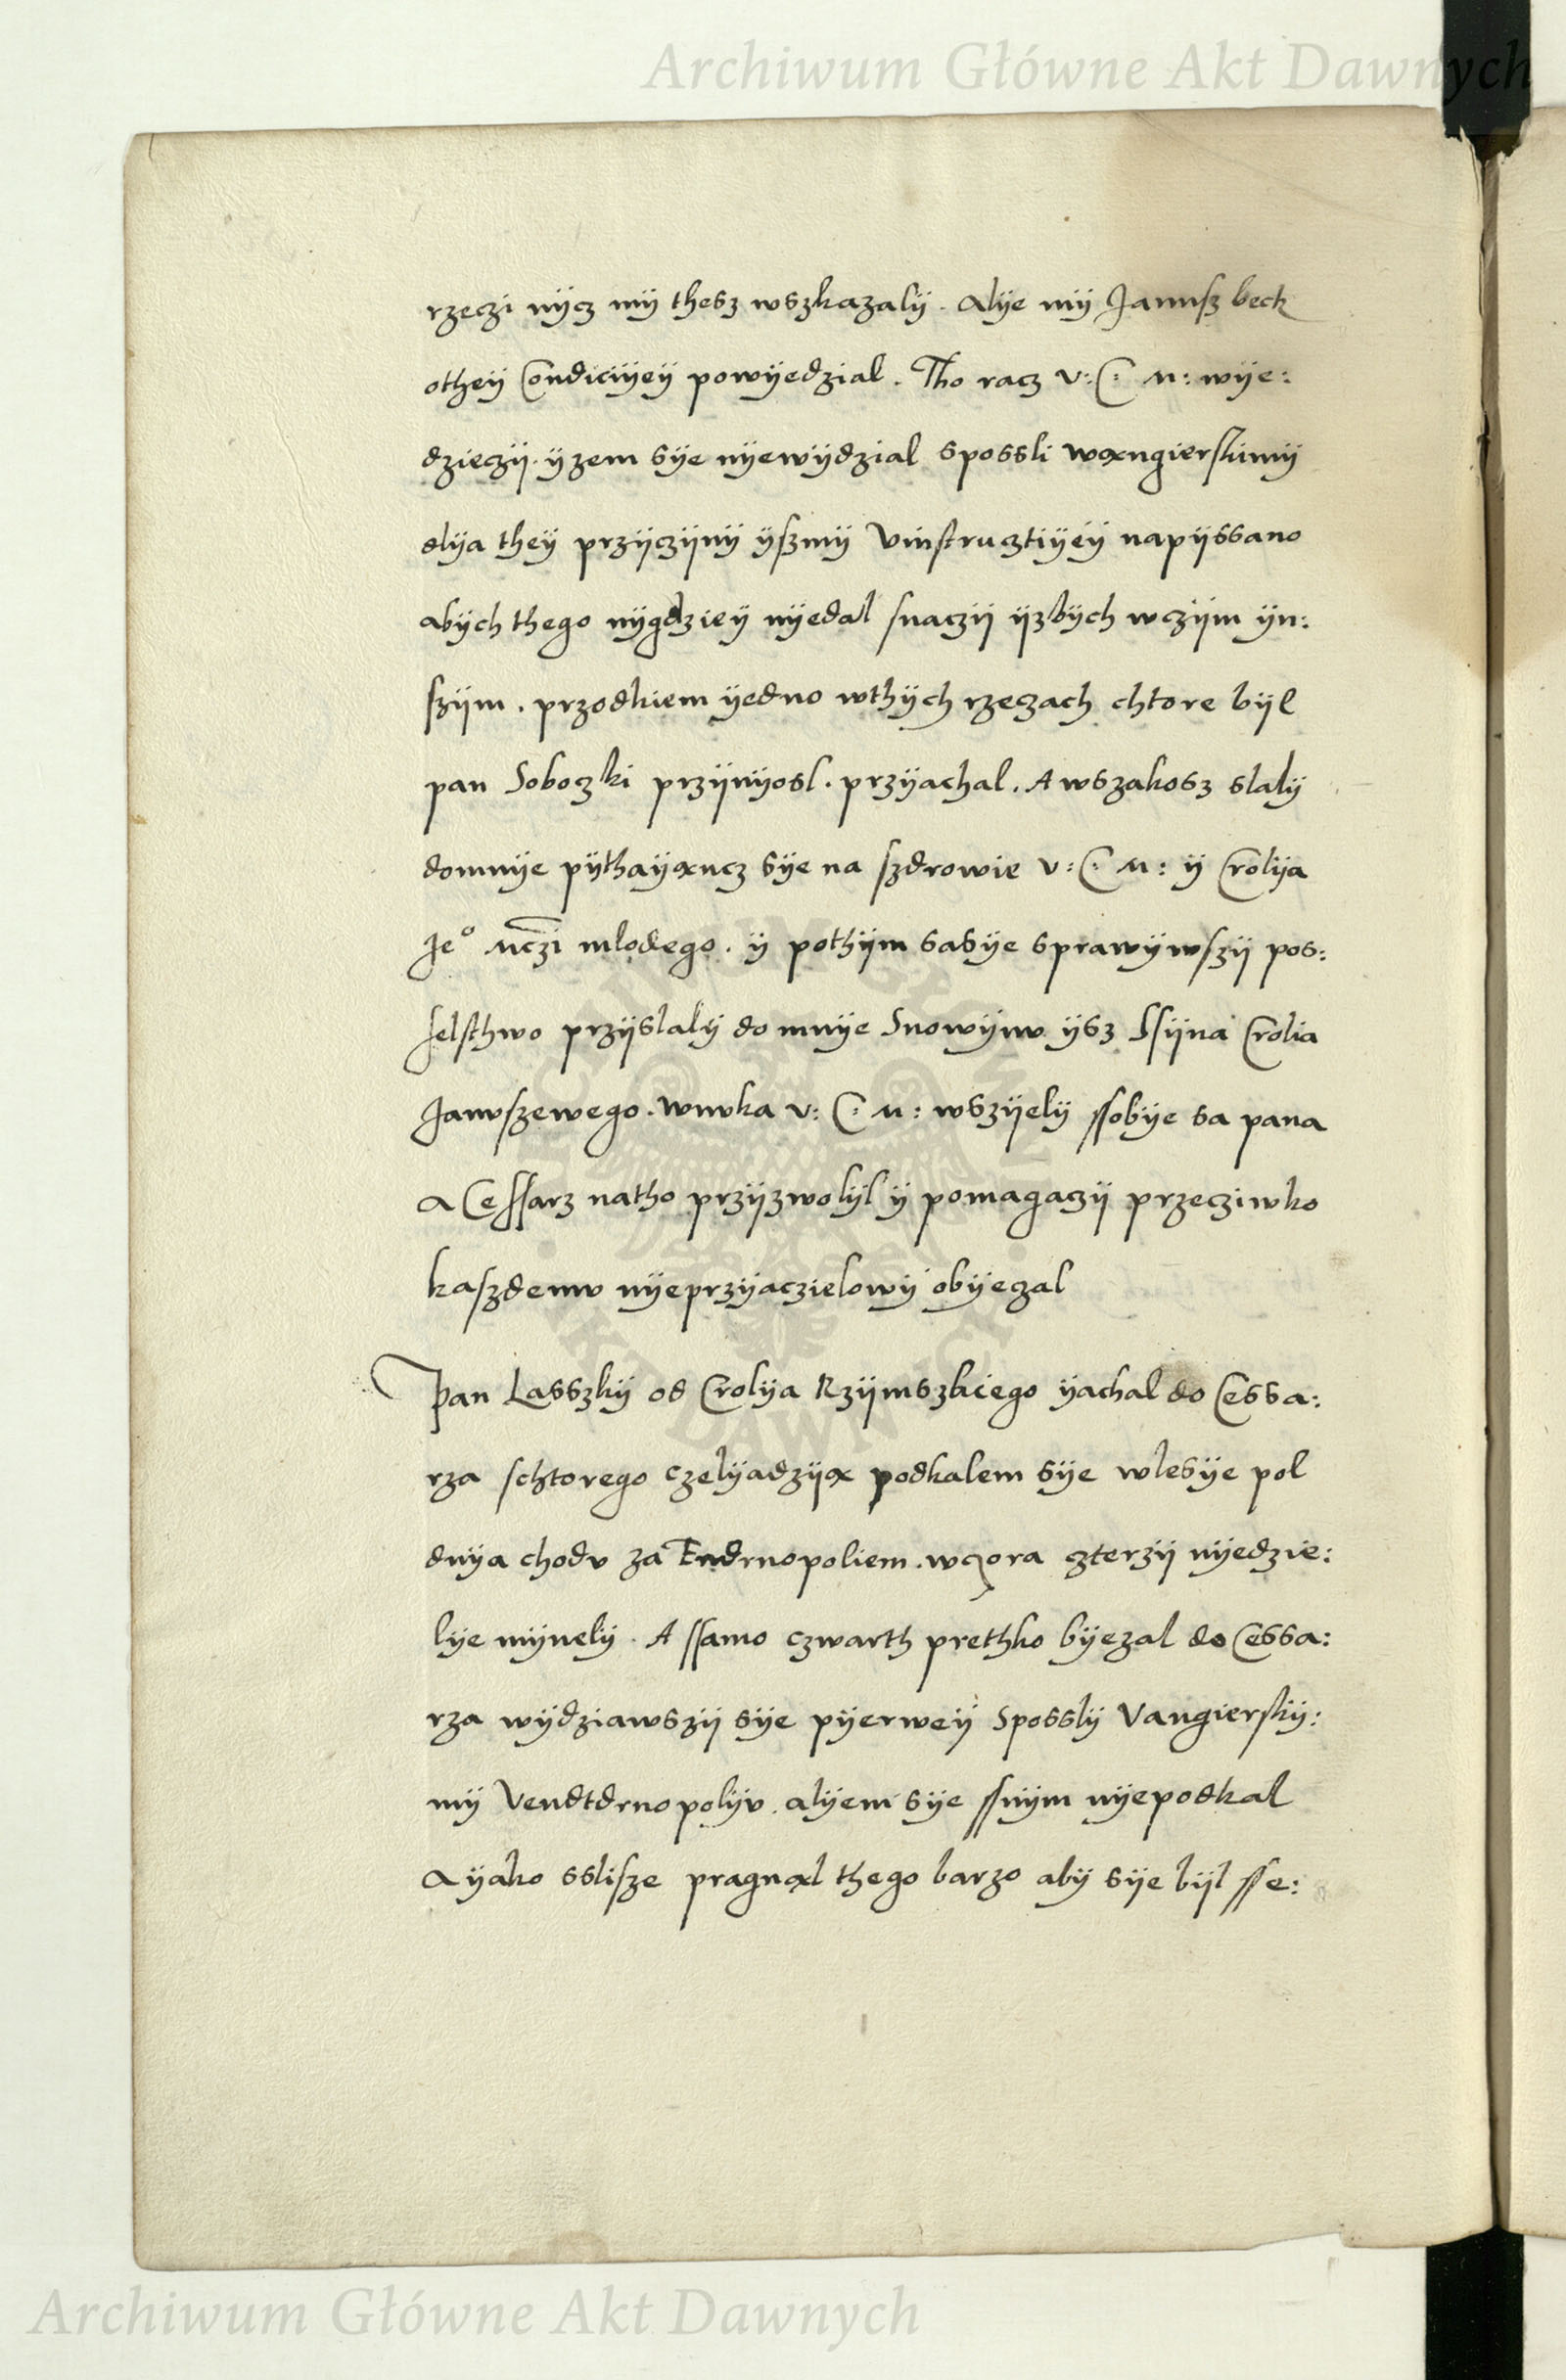 Archiwum Główne Akt Dawnych
rzeczi nÿcz mÿ thesz wszkazalÿ. Alÿe mÿ Janusz beck
otheÿ Condiciÿeÿ powÿedzial. Tho racz V: C: M: wÿe:
dzieczÿ. ÿzem sÿe nÿewÿdzial spossli wąngierskimÿ
dlÿa theÿ przÿczÿnÿ ÿszmÿ Vinstrucztiÿeÿ napÿssano
abÿch thego nÿgdzieÿ nÿedal snaczÿ ÿzbÿch wczÿm ÿn:
szÿm. przodkiem ÿedno wthÿch rzeczach chtore bÿl
pan Soboczki przÿnÿosl. przÿachal. A wszakosz slalÿ
domnÿe pÿthaÿąncz sÿe na szdrowie V: C: M: ÿ Crolÿa
Je° Mczi mlodego. ÿ pothÿm sasÿe sprawÿwszÿ pos:
selsthwo przÿslalÿ do mnÿe Snowÿnv ÿsz Ssÿna Crolia
Janvszewego. wnvka V: C: M: wszÿelÿ ssobÿe sa pana
A Cessarz natho przÿzwolÿl ÿ pomagaczÿ przecziwko
kaszdemv nÿeprzÿaczielowÿ obÿeczal
Pan Lasszkÿ od Crolÿa Rzÿmszkiego ÿachal do Cessa:
rza schtorego czelÿadzÿą podkalem sÿe wlesÿe pol
dnÿa chodv za Endrnopoliem. wczora czterzÿ nÿedzie:
lÿe mÿnelÿ. A ssamo czwarth prethko bÿezal do Cessa:
rza wÿdziawszÿ sÿe pÿerweÿ Sposslÿ Vangierskÿ:
mÿ Vendtdrnopolÿv. alÿem sÿe ssnÿm nÿepodkal
A ÿako sslisze pragnąl thego barzo abÿ sÿe bÿl sse:
Archiwum Główne Akt Dawnych